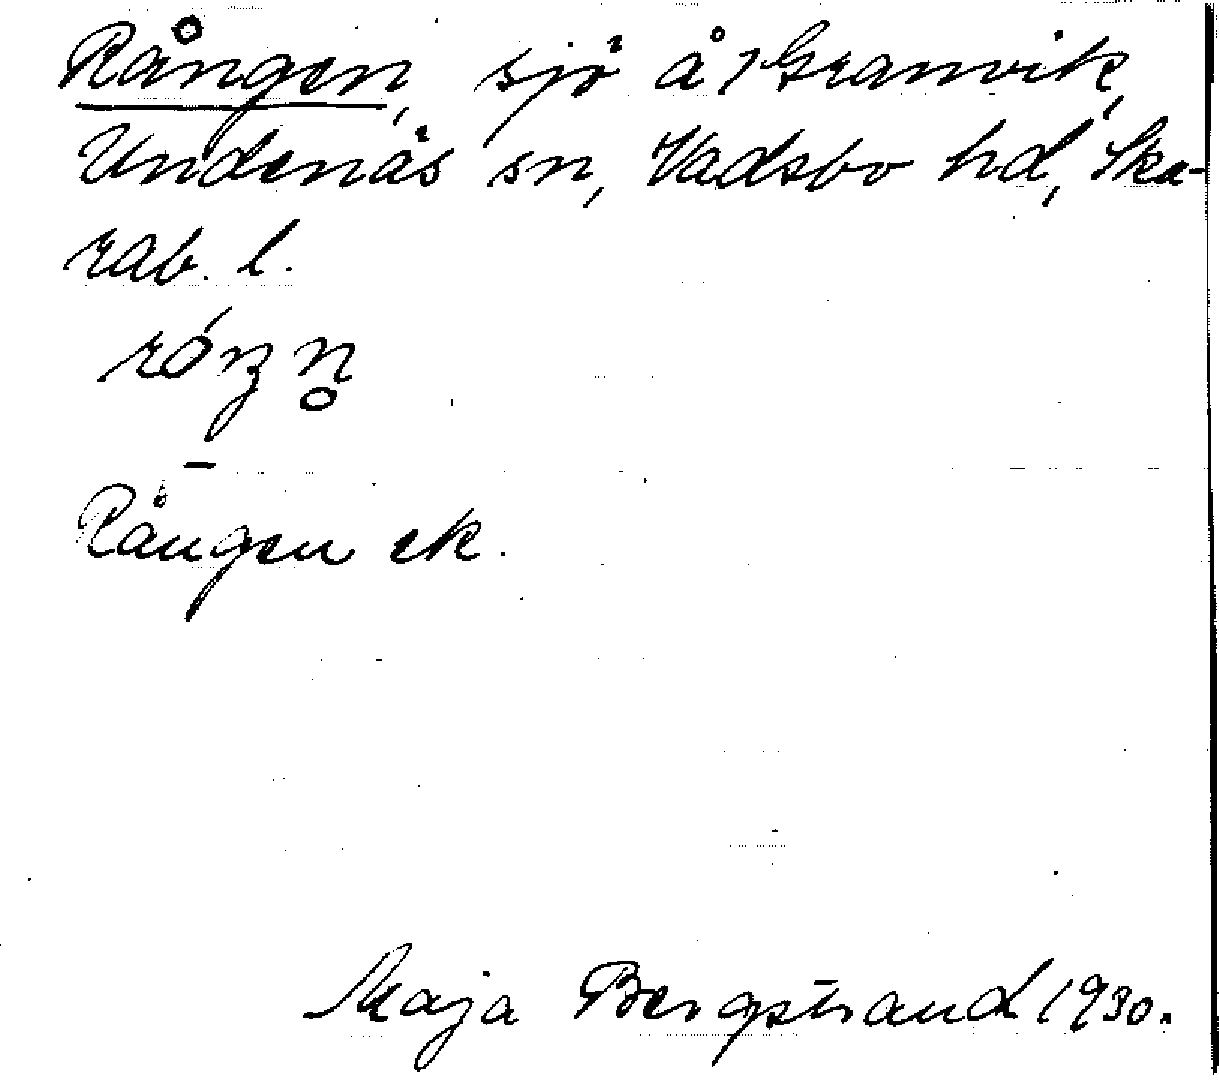 Rången, sjö å 1 Granvik,
Undenäs sn, Vadsbo hd, Ska-
rab. l.
róŋn̥
Rången ek.
Maja Bergstrand 1930.